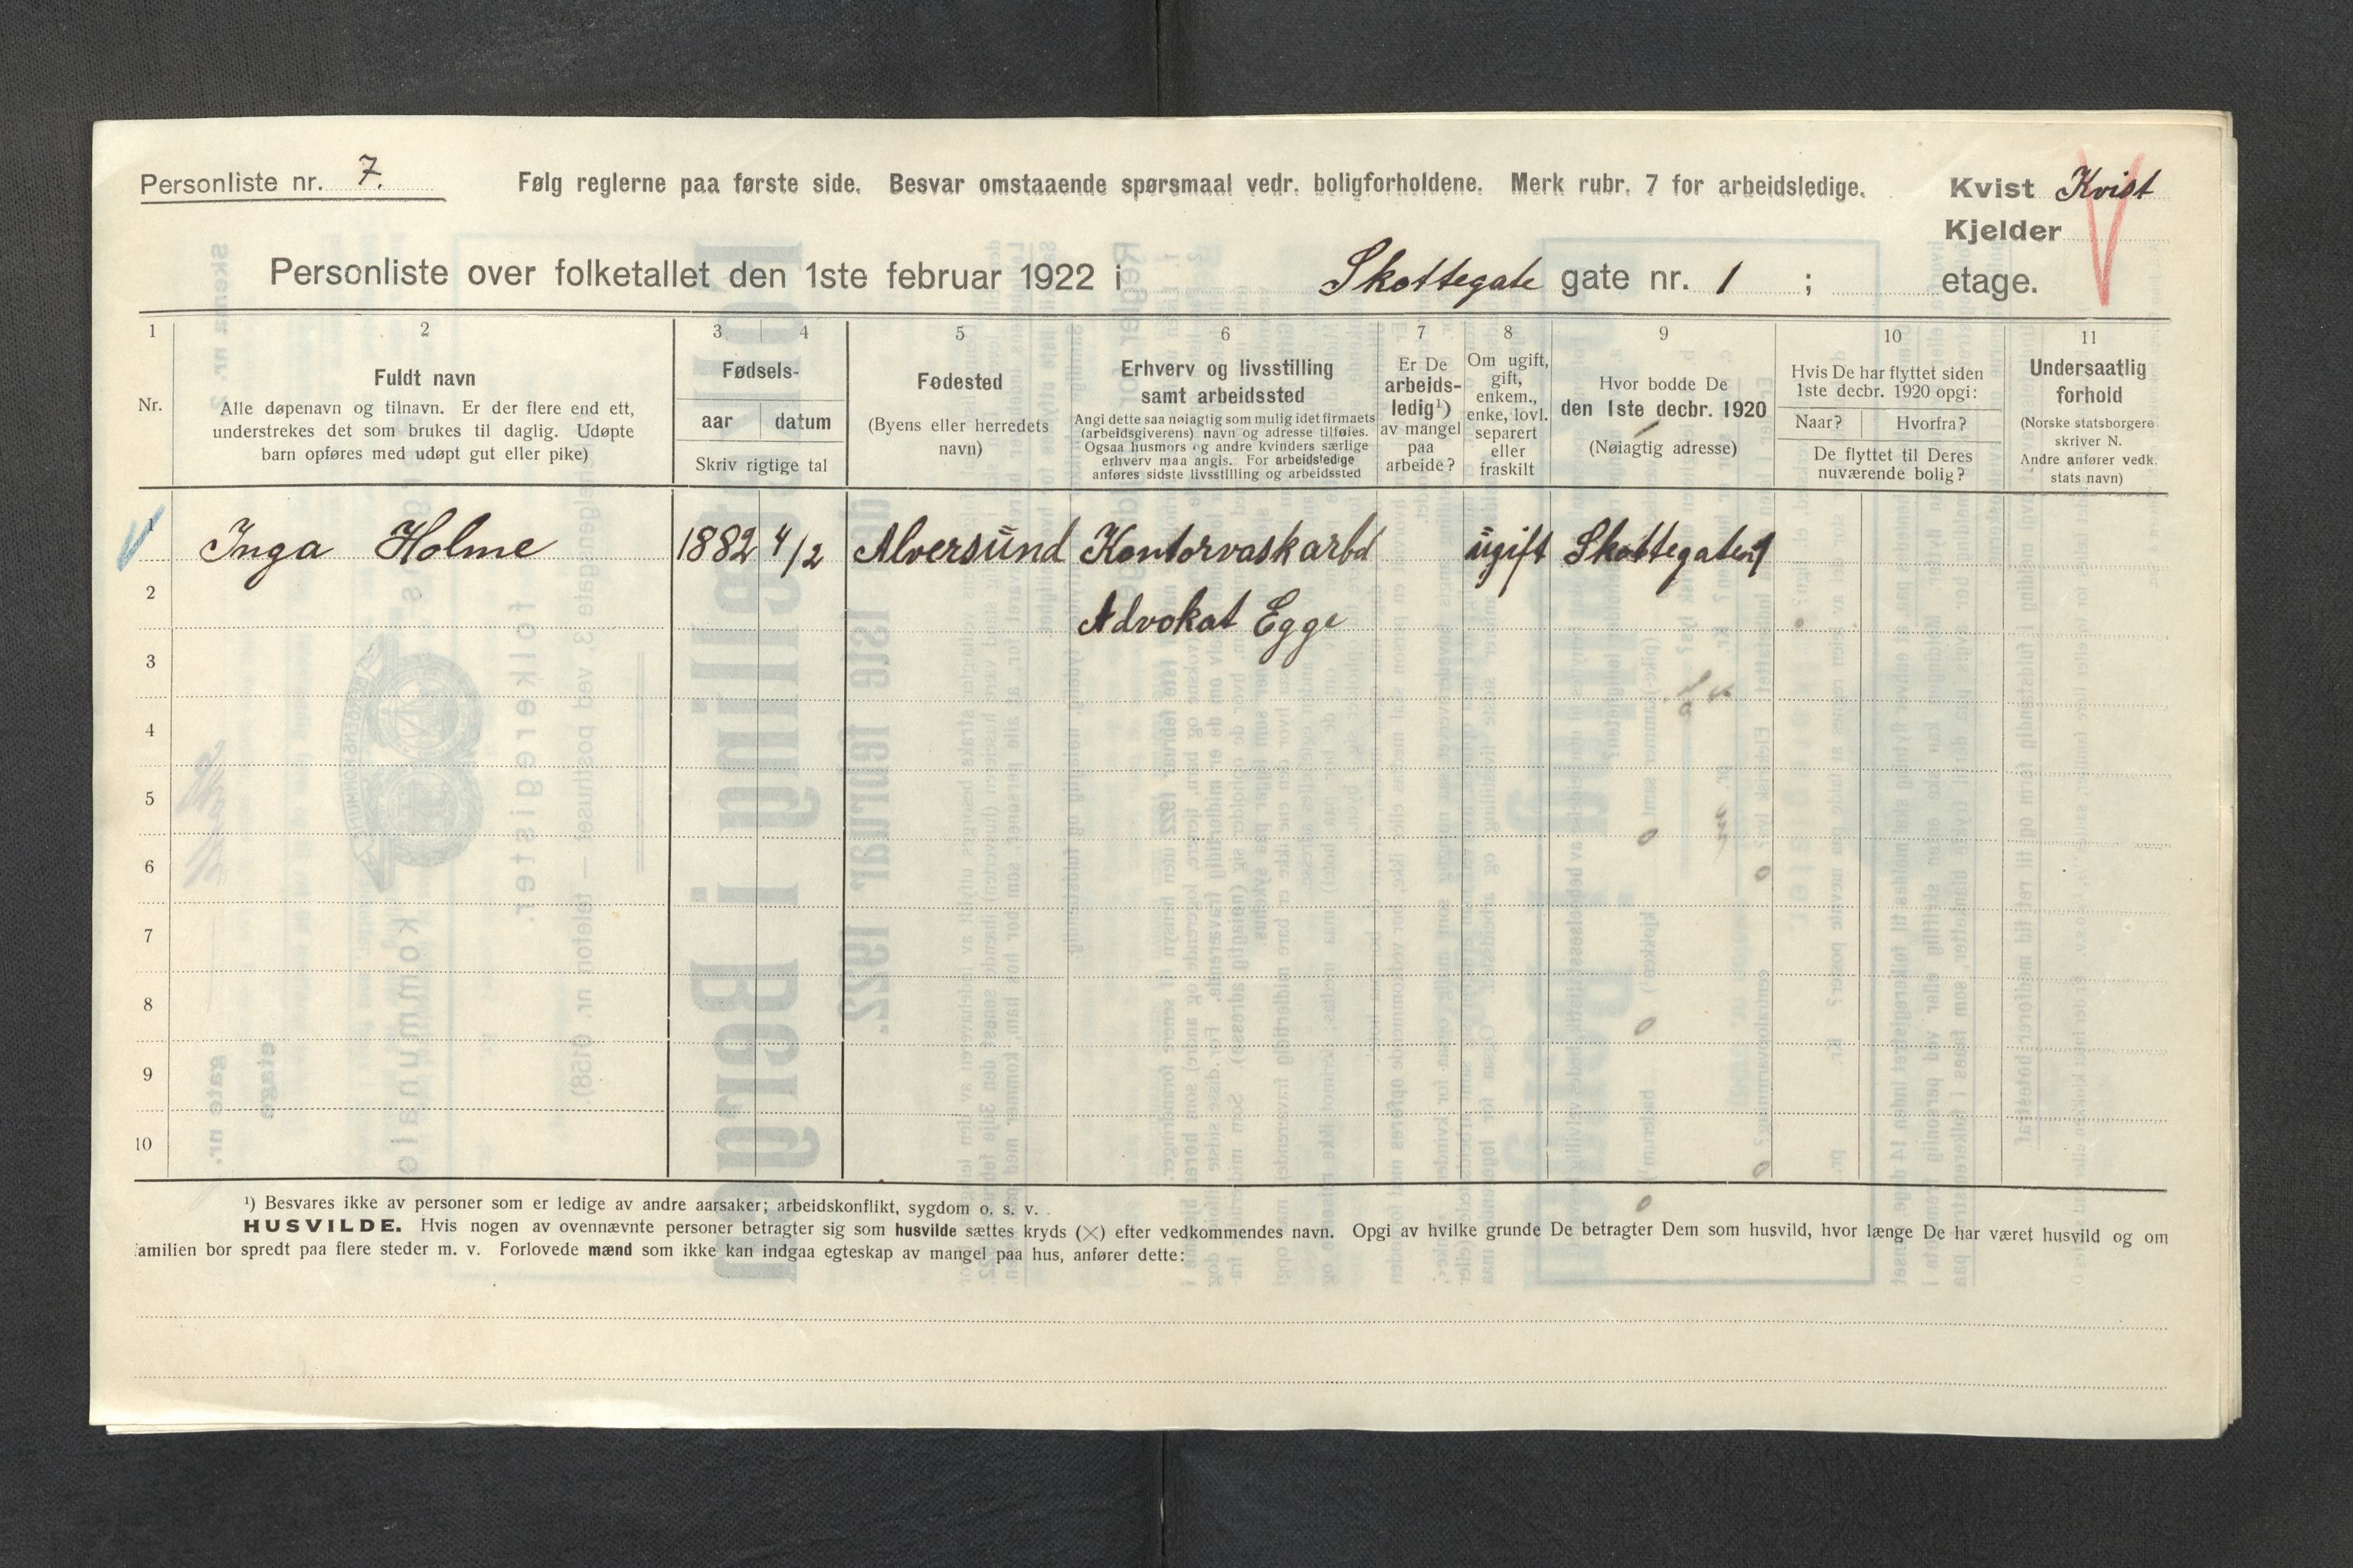 Personliste nr. 7. Følg reglerne paa første side. Besvar omstaaende spørsmaal vedr. boligforholdene. Merk rubr. 7 for arbeidsledige. Kvist Kvist
Kjelder
Personliste over folketallet den 1ste februar 1922 i Skottegate gate nr. 1 ; etage.
1 2 3 4 5 6 7 8 9 10 11
Nr.
Fuldt navn
Alle døpenavn og tilnavn. Er der flere end ett,
understrekes det som brukes til daglig. Udøpte
barn opføres med udøpt gut eller pike)
Fødsels-
aar datum
Skriv rigtige tal
Fødested
(Byens eller herredets
navn)
Erhverv og livsstilling
samt arbeidssted
Angi dette saa nøiagtig som mulig idet firmaets
(arbeidsgiverens) navn og adresse tilføies.
Ogsaa husmors og andre kvinders særlige
erhverv maa angis. For arbeidsledige
anføres sidste livsstilling og arbeidssted
Er De
arbeids-
ledig¹)
av mangel
paa
arbeide?
Om ugift,
gift,
enkem.,
enke, lovl.
separert
eller
fraskilt
Hvor bodde De
den 1ste decbr. 1920
(Nøiagtig adresse)
Hvis De har flyttet siden
1ste decbr. 1920 opgi:
Naar? Hvorfra?
De flyttet til Deres
nuværende bolig?
Undersaatlig
forhold
(Norske statsborgere
skriver N.
Andre anfører vedk.
stats navn)
1 Inga Holme 1882 4/2 Alversund Kontorvask arbd ugift Skottegaten 1
2 Advokat Egge
3
4
5
6
7
8
9
10
¹) Besvares ikke av personer som er ledige av andre aarsaker; arbeidskonflikt, sygdom o. s. v.
HUSVILDE. Hvis nogen av ovennævnte personer betragter sig som husvilde sættes kryds (×) efter vedkommendes navn. Opgi av hvilke grunde De betragter Dem som husvild, hvor længe De har været husvild og om
familien bor spredt paa flere steder m. v. Forlovede mænd som ikke kan indgaa egteskap av mangel paa hus, anfører dette: